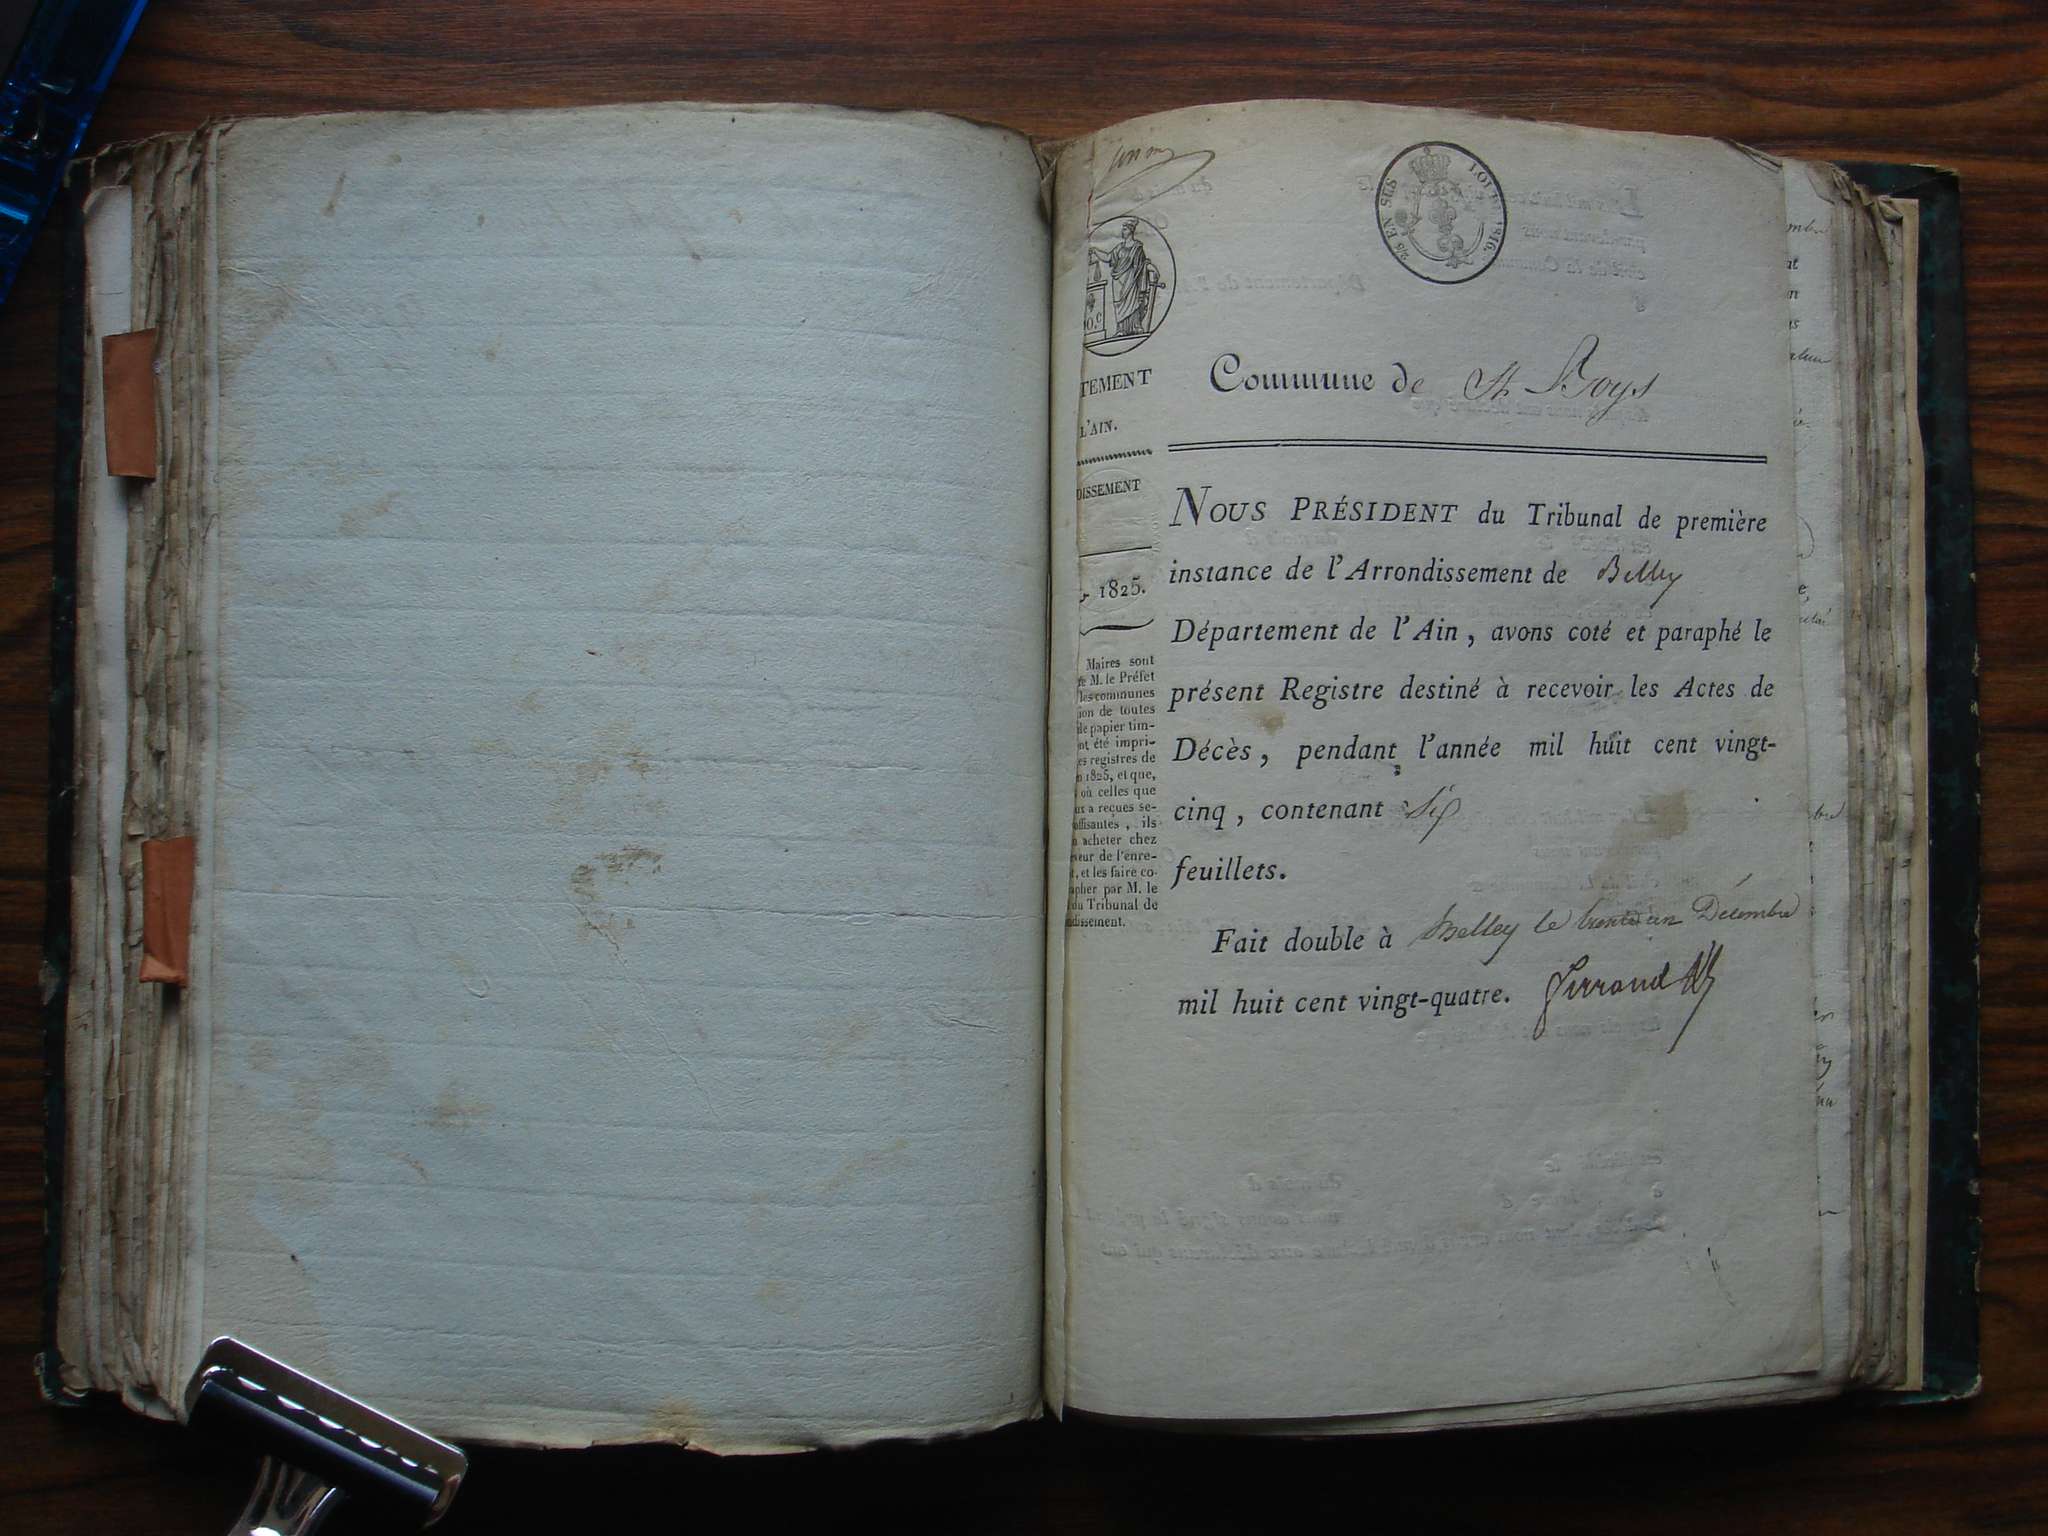 LOI DE 1816.
EN SUS
0.c
TEMENT
L'AIN.
DISSEMENT
1825.
Maires sont
e M. le Préfet
les communes
ion de toutes
de papier tim-
nt été impri-
es registres de
n 1825, et que,
où celles que
ux a reçues se-
uffisantes, ils
n acheter chez
veur de l'enre-
t, et les faire co-
apher par M. le
du Tribunal de
ndissement.
Commune de St Boys
NOUS PRÉSIDENT du Tribunal de première
instance de l'Arrondissement de Belley
Département de l'Ain, avons coté et paraphé le
présent Registre destiné à recevoir les Actes de
Décès, pendant l'année mil huit cent vingt-
cinq, contenant six
feuillets.
Fait double à Belley le trente un Décembre
mil huit cent vingt-quatre.